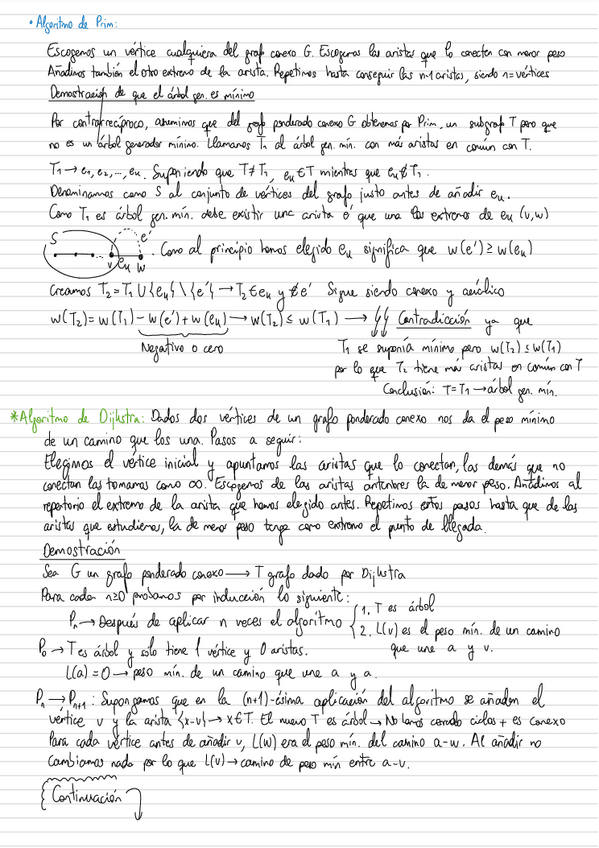 • Algoritmo de Prim:
Escogemos un vértice cualquiera del grafo conexo G. Escogemos las aristas que lo conectan con menor peso
Añadimos también el otro extremo de la arista. Repetimos hasta conseguir las n-1 aristas, siendo n=vértices
Demostración de que el árbol gen. es mínimo
Por contrarrecíproco, asumimos que del grafo ponderado conexo G obtenemos por Prim, un subgrafo T pero que
no es un árbol generador mínimo. Llamamos T₁ al árbol gen. mín. con más aristas en común con T.
T₁ → e₁, e₂, ..., eₖ. Suponiendo que T≠T₁, eₖ∈T mientras que eₖ∉T₁.
Denominamos como S al conjunto de vértices del grafo justo antes de añadir eₖ.
Como T₁ es árbol gen. mín. debe existir una arista e' que una los extremos de eₖ (v,w)
S e' v eₖ w . Como al principio hemos elegido eₖ significa que w(e') ≥ w(eₖ)
Creamos T₂ = T₁ ∪ {eₖ} \ {e'} → T₂ ∈ eₖ y ∉ e' Sigue siendo conexo y acíclico
w(T₂) = w(T₁) - w(e') + w(eₖ) → w(T₂) ≤ w(T₁) → Contradicción ya que
Negativo o cero
T₁ se suponía mínimo pero w(T₂) ≤ w(T₁)
por lo que T₂ tiene más aristas en común con T
Conclusión: T=T₁ → árbol gen. mín.
*Algoritmo de Dijkstra: Dados dos vértices de un grafo ponderado conexo nos da el peso mínimo
de un camino que los una. Pasos a seguir:
Elegimos el vértice inicial y apuntamos las aristas que lo conectan, las demás que no
conectan las tomamos como ∞. Escogemos de las aristas anteriores la de menor peso. Añadimos al
repertorio el extremo de la arista que hemos elegido antes. Repetimos estos pasos hasta que de las
aristas que estudiemos, la de menor peso tenga como extremo el punto de llegada.
Demostración
Sea G un grafo ponderado conexo → T grafo dado por Dijkstra
Para cada n≥0 probamos por inducción lo siguiente:
Pₙ → Después de aplicar n veces el algoritmo { 1. T es árbol
2. L(v) es el peso mín. de un camino
que une a y v.
P₀ → T es árbol y solo tiene 1 vértice y 0 aristas.
L(a) = 0 → peso mín. de un camino que une a y a.
Pₙ → Pₙ₊₁ : Supongamos que en la (n+1)-ésima aplicación del algoritmo se añaden el
vértice v y la arista {x-v} → x∈T. El nuevo T' es árbol → No hemos cerrado ciclos + es conexo
Para cada vértice antes de añadir v, L(w) era el peso mín. del camino a-w. Al añadir no
cambiamos nada por lo que L(v) → camino de peso mín entre a-v.
{ Continuación